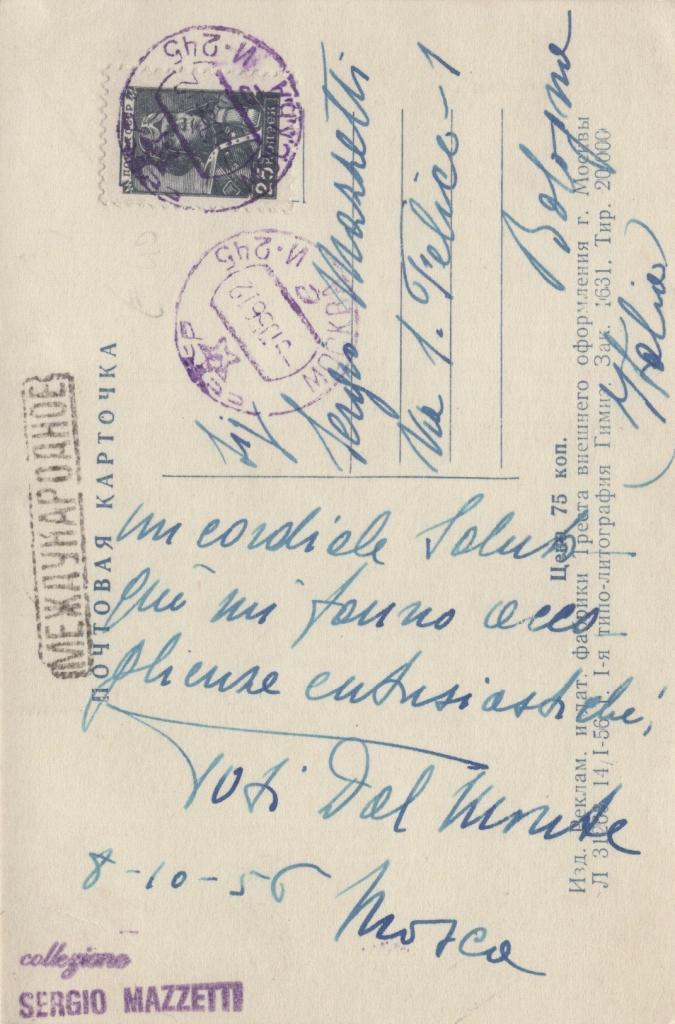 МЕЖДУНАРОДНОЕ
ПОЧТОВАЯ КАРТОЧКА
25 КОПЕЕК
И-245
МОСКВА
И-245
Sig
Sergio Mazzetti
Via S. Felice-1
Bologna
(Italia)
un cordiale Saluto
qui mi fanno acco
glienze entusiastiche,
Toti Dal Monte
8-10-56
Mosca
Цена 75 коп.
Изд. Реклам. издат. фабрики Треста внешнего оформления г. Москвы
14/I-56 г. I-я типо-литография Гимиз Зак. 1631. Тир. 200000
collezione
SERGIO MAZZETTI